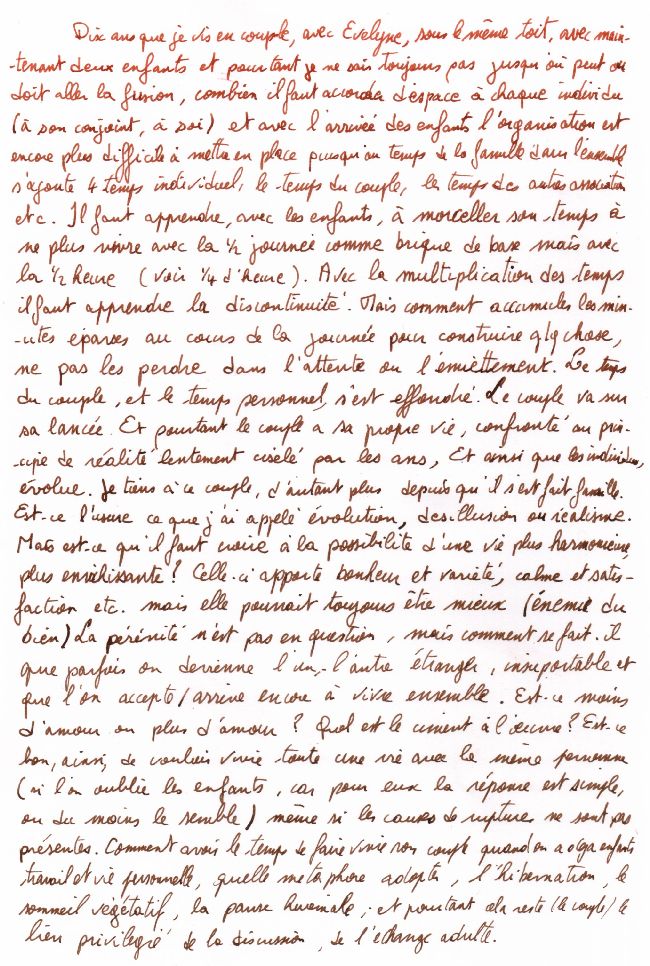 Dix ans que je vis en couple, avec Evelyne, sous le même toit, avec main-
-tenant deux enfants et pourtant je ne sais toujours pas jusqu'où peut ou
doit aller la fusion, combien il faut accorder d'espace à chaque individu
(à son conjoint, à soi) et avec l'arrivée des enfants l'organisation est
encore plus difficile à mettre en place puisqu'au temps de la famille dans l'ensemble
s'ajoute 4 temps individuel, le temps du couple, les temps des autres association
etc. Il faut apprendre, avec les enfants, à morceller son temps à
ne plus vivre avec la 1/2 journée comme brique de base mais avec
la 1/2 heure (voir 1/4 d'heure). Avec la multiplication des temps
il faut apprendre la discontinuité. Mais comment accumuler les min-
-utes éparses au cours de la journée pour construire qlq chose,
ne pas les perdre dans l'attente ou l'émiettement. Le temps
du couple, et le temps personnel, s'est effondré. Le couple va sur
sa lancée. Et pourtant le couple a sa propre vie, confronté au prin-
-cipe de réalité lentement ciselé par les ans, Et ainsi que les individus,
évolue. Je tiens à ce couple, d'autant plus depuis qu'il s'est fait famille.
Est-ce l'usure ce que j'ai appelé évolution, désillusion ou réalisme.
Mais est-ce qu'il faut croire à la possibilité d'une vie plus harmonieuse,
plus enrichissante? Celle-ci apporte bonheur et variété, calme et satis-
faction etc. mais elle pourrait toujours être mieux (énemie du
bien) La pérénité n'est pas en question, mais comment se fait-il
que parfois on devienne l'un, l'autre étranger, insuportable et
que l'on accepte/arrive encore à vivre ensemble. Est-ce moins
d'amour ou plus d'amour? Quel est le ciment à l'oeuvre? Est-ce
bon, ainsi, de vouloir vivre toute une vie avec la même personne
(si l'on oublie les enfants, car pour eux la réponse est simple,
ou du moins le semble) même si les causes de rupture ne sont pas
présentes. Comment avoir le temps de faire vivre son couple quand on a enfants
travail et vie personnelle, quelle métaphore adopter, l'hibernation, le
sommeil végétatif, la pause hivernale, et pourtant cela reste (le couple) le
lien privilégié de la discussion, de l'échange adulte.